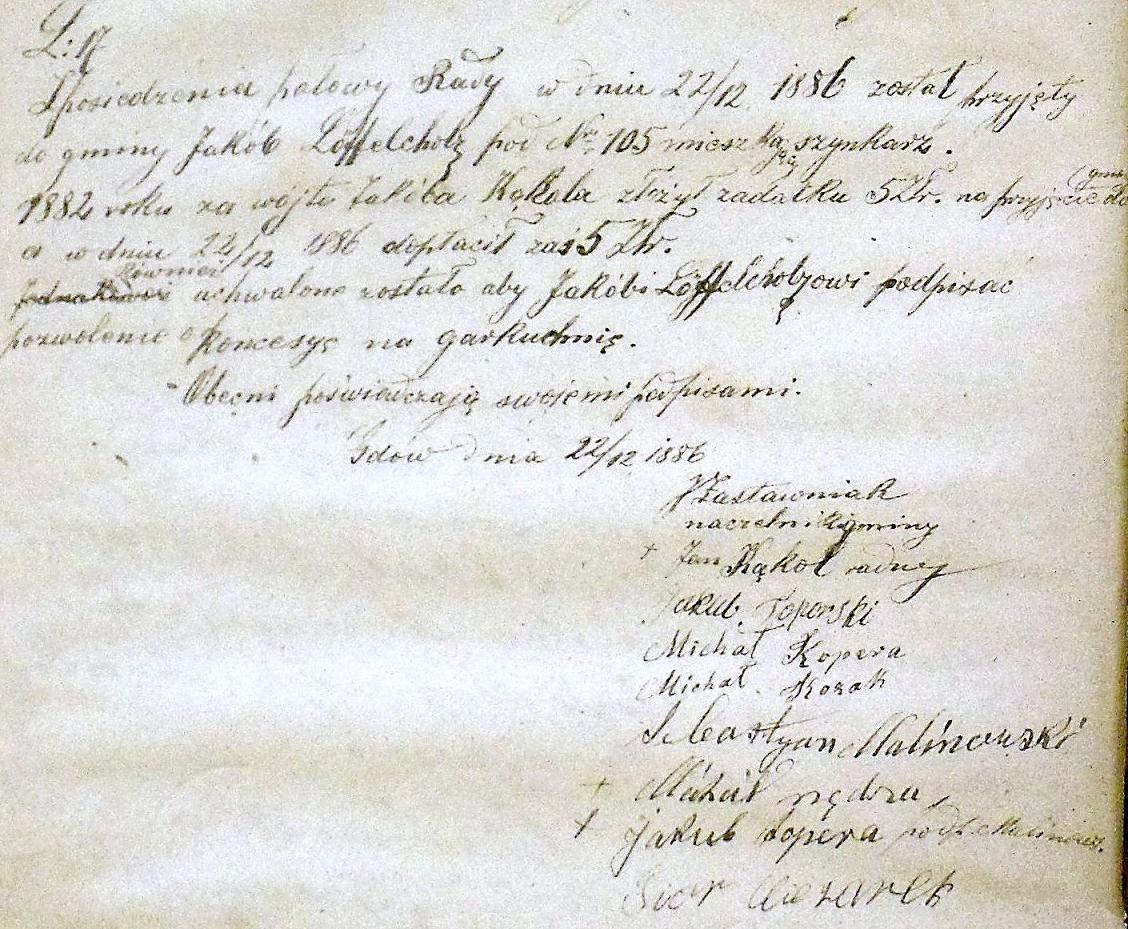 L: 17
Z posiedzenia połowy Rady w dniu 22/12 1886 został przyjęty
do gminy Jakób Löffelcholz pod Nr 105 mieszkający szynkarz.
1882 roku za wójta Jakóba Kąkola złożył zadatku 5 Zr. na przyjęcie do gminy
a w dniu 22/12 1886 dopłacił zaś 5 Zr.
również uchwalone zostało aby Jakóbi Löffelcholzowi podpisać
pozwolenie o koncesyę na garkuchnię.
Obecni poświadczają swojemi podpisami.
Gdów dnia 22/12 1886
JZastawniak
naczelnik gminy
+ Jan Kąkol radny
Jakub Toporski
Michał Kopera
Michał Kozak
Sebastyan Malinowski
+ Michał nędza
+ Jakub kopera podp. Malinows.
Piotr